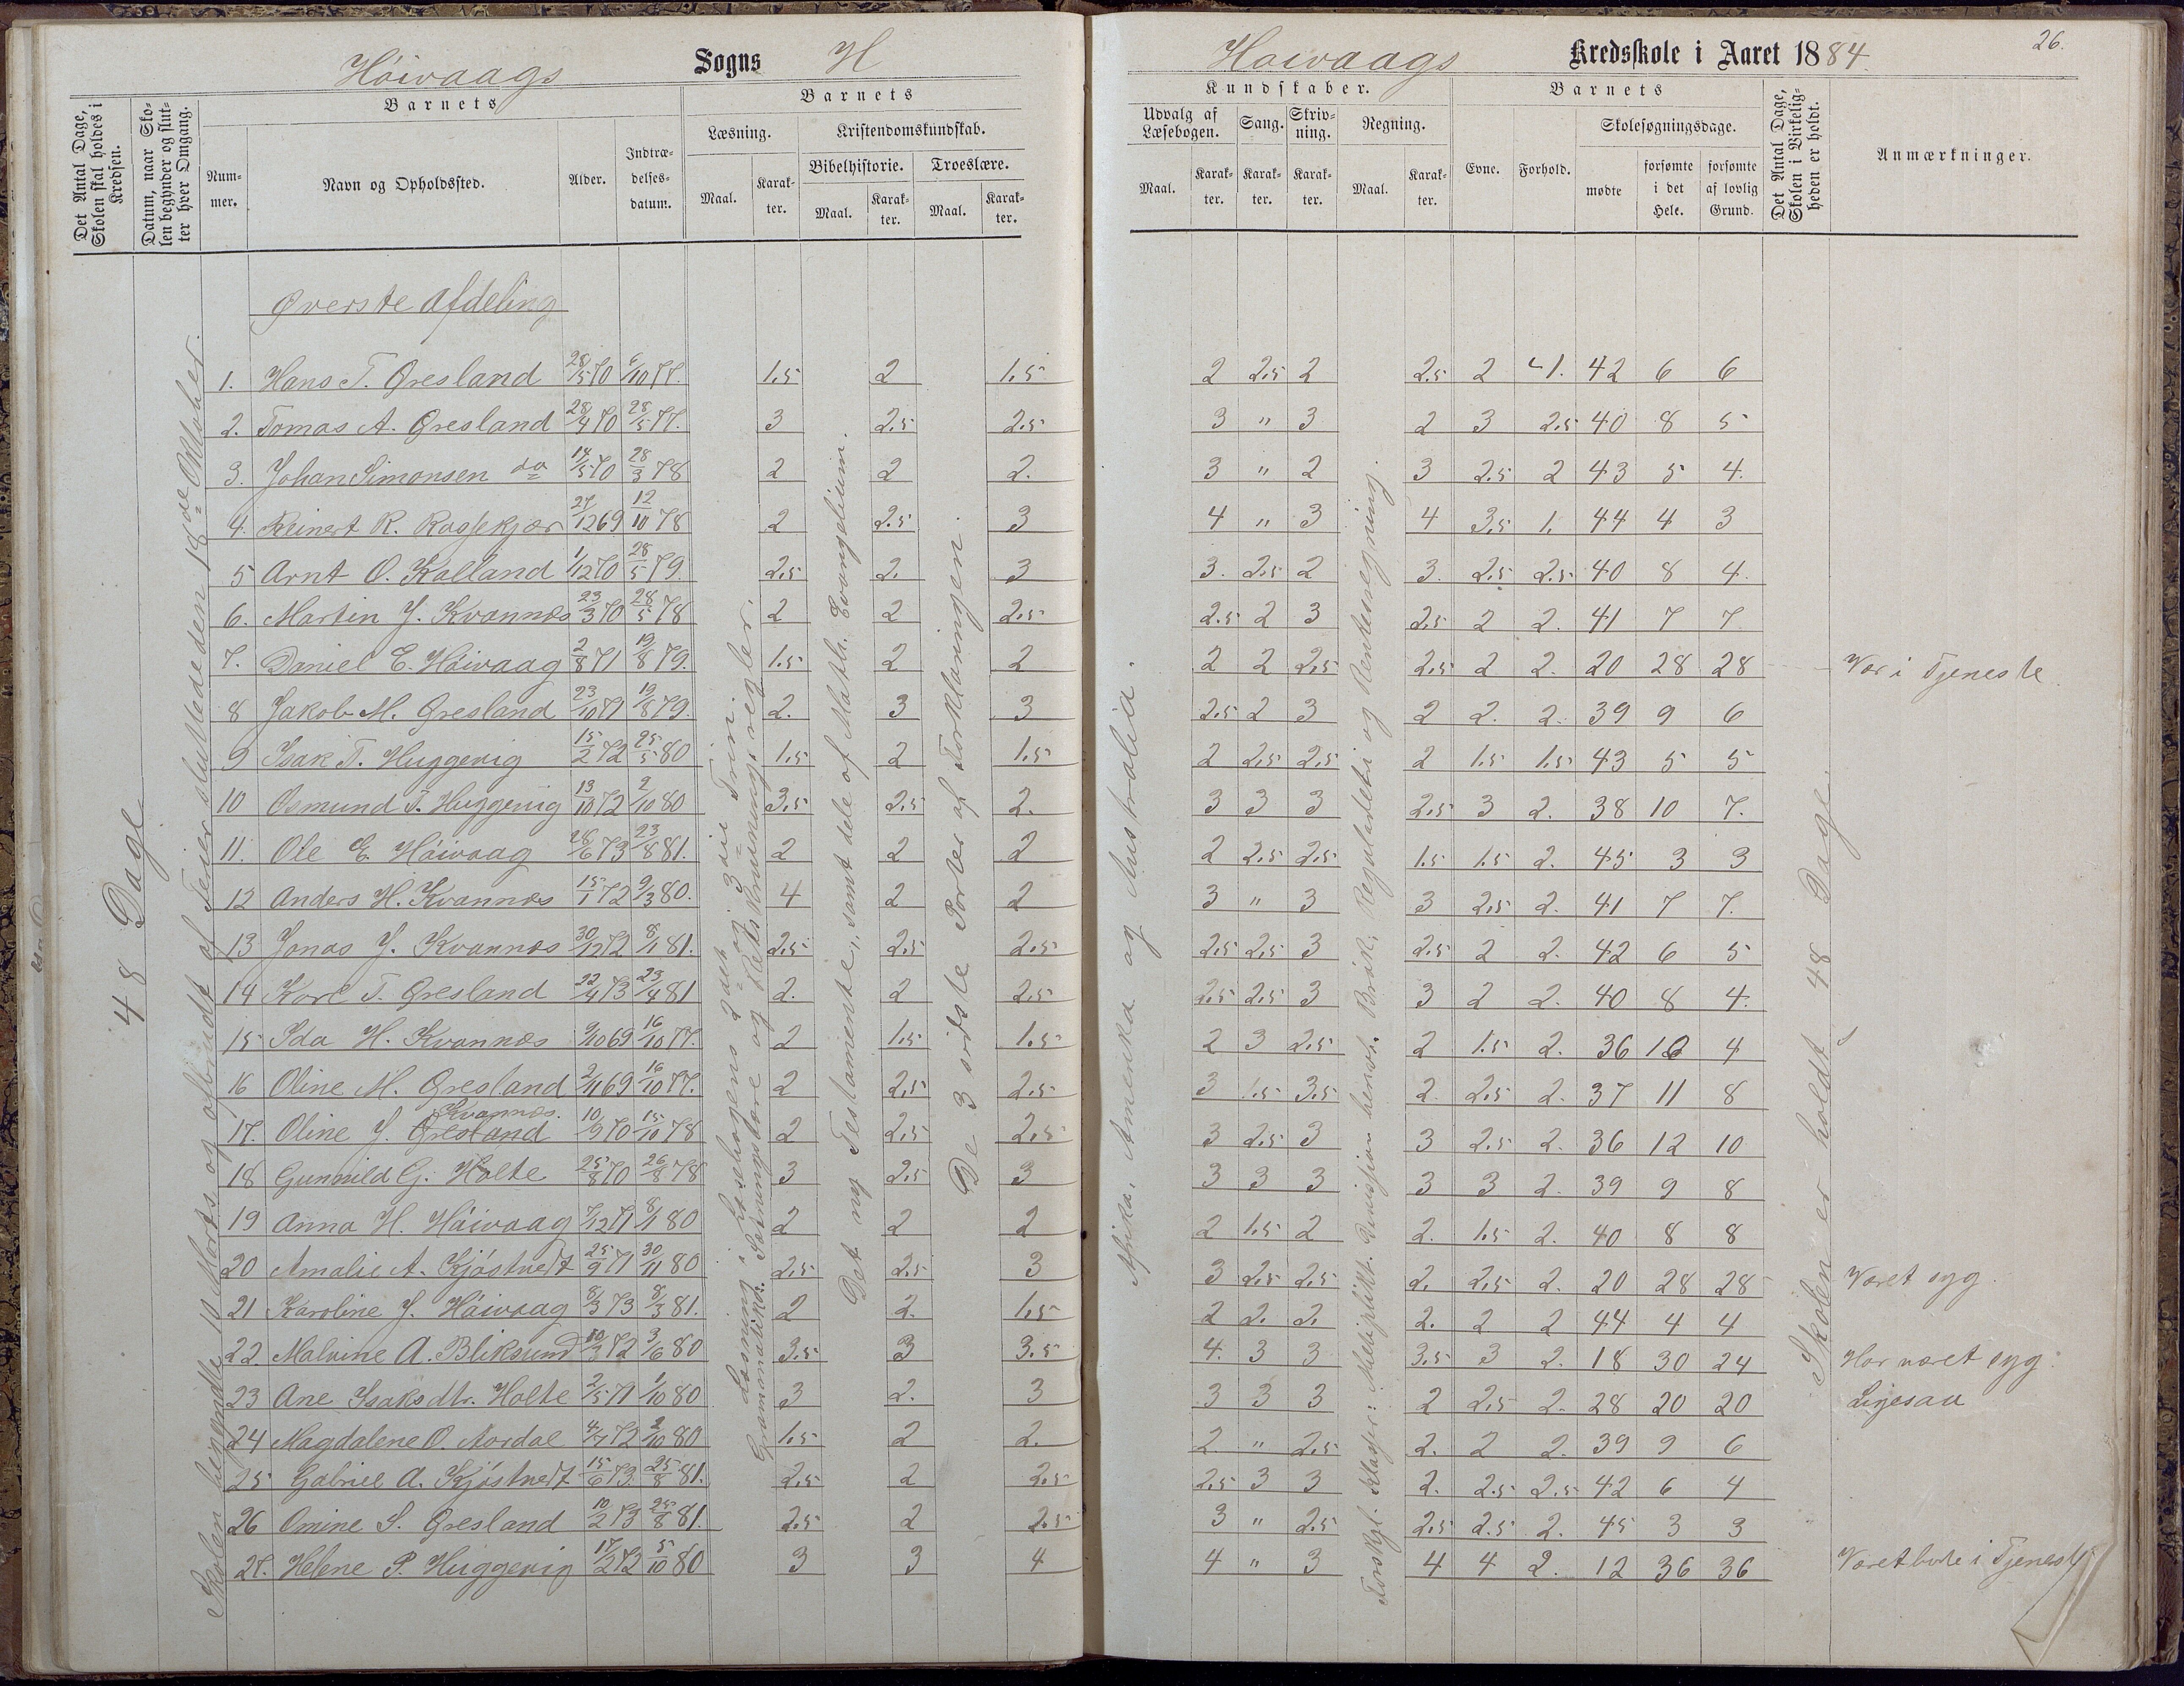 Höivaags Sogns H
Höivaags Kredsskole i Aaret 1884.
26.
Det Antal Dage, Skolen skal holdes i Kredsen.
Datum, naar Skolen begynder og slutter hver Omgang.
Barnets
Nummer.
Navn og Opholdssted.
Alder.
Indtrædelsesdatum.
Barnets
Læsning.
Maal.
Karakter.
Kristendomskundskab.
Bibelhistorie.
Maal.
Karakter.
Troeslære.
Maal.
Karakter.
Kundskaber.
Udvalg af Læsebogen.
Maal.
Karakter.
Sang.
Karakter.
Skrivning.
Karakter.
Regning.
Maal.
Karakter.
Barnets
Evne.
Forhold.
Skolesøgningsdage.
mødte
forsømte i det Hele.
forsømte af lovlig Grund.
Det Antal Dage, Skolen i Virkeligheden er holdt.
Anmærkninger.
48 Dage
Skolen begyndte 10 Marts og afbrudt af Ferier sluttede den 18de Oktober.
Øverste Afdeling
Læsning i Læsebogens 2det og 3die Trin.
Det ny Testamente, samt dele af Matth. Evangelium.
De 3 sidste Parter af Forklaringen.
Afrika, Amerika og Australia.
Skolen er holdt 48 Dage.
1. Hans T. Gresland 28/5 70 6/10 77. 1.5 2 1.5 2 2.5 2 2.5 2 1. 42 6 6
2. Tomas A. Gresland 28/4 70 28/5 77. 3 2.5 2.5 3 " 3 2 3 2.5 40 8 5
3. Johan Simonsen do 14/5 70 28/3 78 2 2 2. 3 " 2 3 2.5 2 43 5 4.
4. Reinert R. Rossekjær 27/12 69 12/10 78 2 2.5 3 4 " 3 4 3.5 1. 44 4 3
5 Arnt O. Kalland 1/12 70 28/5 79. 2.5 2. 3 3. 2.5 2 3. 2.5 2.5 40 8 4.
6. Martin J. Kvannes 23/3 70 28/5 78 2 2 2.5 2.5 2 3 2.5 2 2. 41 7 7
7. Daniel E. Höivaag 2/8 71 19/8 79. 1.5 2 2 2 2 2.5 2.5 2 2. 20 28 28 Vær i Tjeneste
8 Jakob M. Gresland 23/10 71 19/8 79. 2. 3 3 2.5 2 3 2 2. 2. 39 9 6
9 Isak T. Huggevig 15/2 72 25/5 80 1.5 2 1.5 2 2.5 2.5 2 1.5 1.5 43 5 5
10 Osmund T. Huggevig 13/10 72 2/10 80 3.5 2.5 2. 3 3 3 2.5 3 2. 38 10 7.
11. Ole E. Höivaag 26/6 73 23/8 81. 2 2 2 2 2.5 2.5 1.5 1.5 2. 45 3 3
12 Anders H. Kvannes 15/1 72 9/3 80. 4 2 2 3 " 3 3 2.5 2. 41 7 7.
13 Jonas J. Kvannes 30/12 72 8/1 81. 2.5 2.5 2.5 2.5 2.5 3 2.5 2 2. 42 6 5
14 Karl T. Gresland 22/4 73 23/4 81 2. 2 2.5 2.5 2.5 3 3 2 2. 40 8 4.
15 Ida H. Kvannes 9/10 69 16/10 77. 2 1.5 1.5 2 3 2.5 2 1.5 2. 36 12 4
16 Oline M. Gresland 2/11 69 16/10 77. 2 2.5 2.5 3 1.5 3.5 2. 2.5 2. 37 11 8
Kvannes.
17. Oline J. Gresland 10/9 70 15/10 78 2 2.5 2.5 3 2.5 3 3 2.5 2. 36 12 10
18 Gunnild G. Holte 25/8 70 26/8 78 3 2.5 3 3 3 3 3 3 2. 39 9 8
19 Anna H. Höivaag 7/12 71 8/1 80 2 2 2 2 1.5 2 2. 1.5 2. 40 8 8
20 Amalie A. Kjöstvedt 25/9 71 30/11 80 2.5 2.5 3 3 2.5 2.5 2. 2.5 2. 20 28 28 Været syg
21 Karoline J. Höivaag 8/3 73 8/3 81. 2 2. 1.5 2 2. 2. 2. 2 2 44 4 4
22. Malvine A. Bliksund 10/3 72 3/6 80 3.5 3 3.5 4. 3 3 3.5 3 2. 18 30 24 Har været syg.
23 Ane Isaksdtr. Holte 2/5 71 1/10 80 3 2. 3 3 3 3 2 2.5 2. 28 20 20 Ligesaa
24 Magdalene O. Aardal 4/7 72 2/10 80 1.5 2 2. 2. " 2.5 2. 2 2. 39 9 6
25 Gabriel A. Kjöstvedt 15/6 73. 25/8 81. 2.5 2 2.5 2.5 3 3 2. 2.5 2.5 42 6 4
26 Omine S. Gresland 10/2 73 25/8 81. 2.5 2 2.5 3 " 2.5 2.5 2.5 2. 45 3 3
27. Helene P. Huggevig 17/2 72 5/10 80 3 3 4 4 " 3 4 4 2. 12 36 36 Været borte i Tjeneste